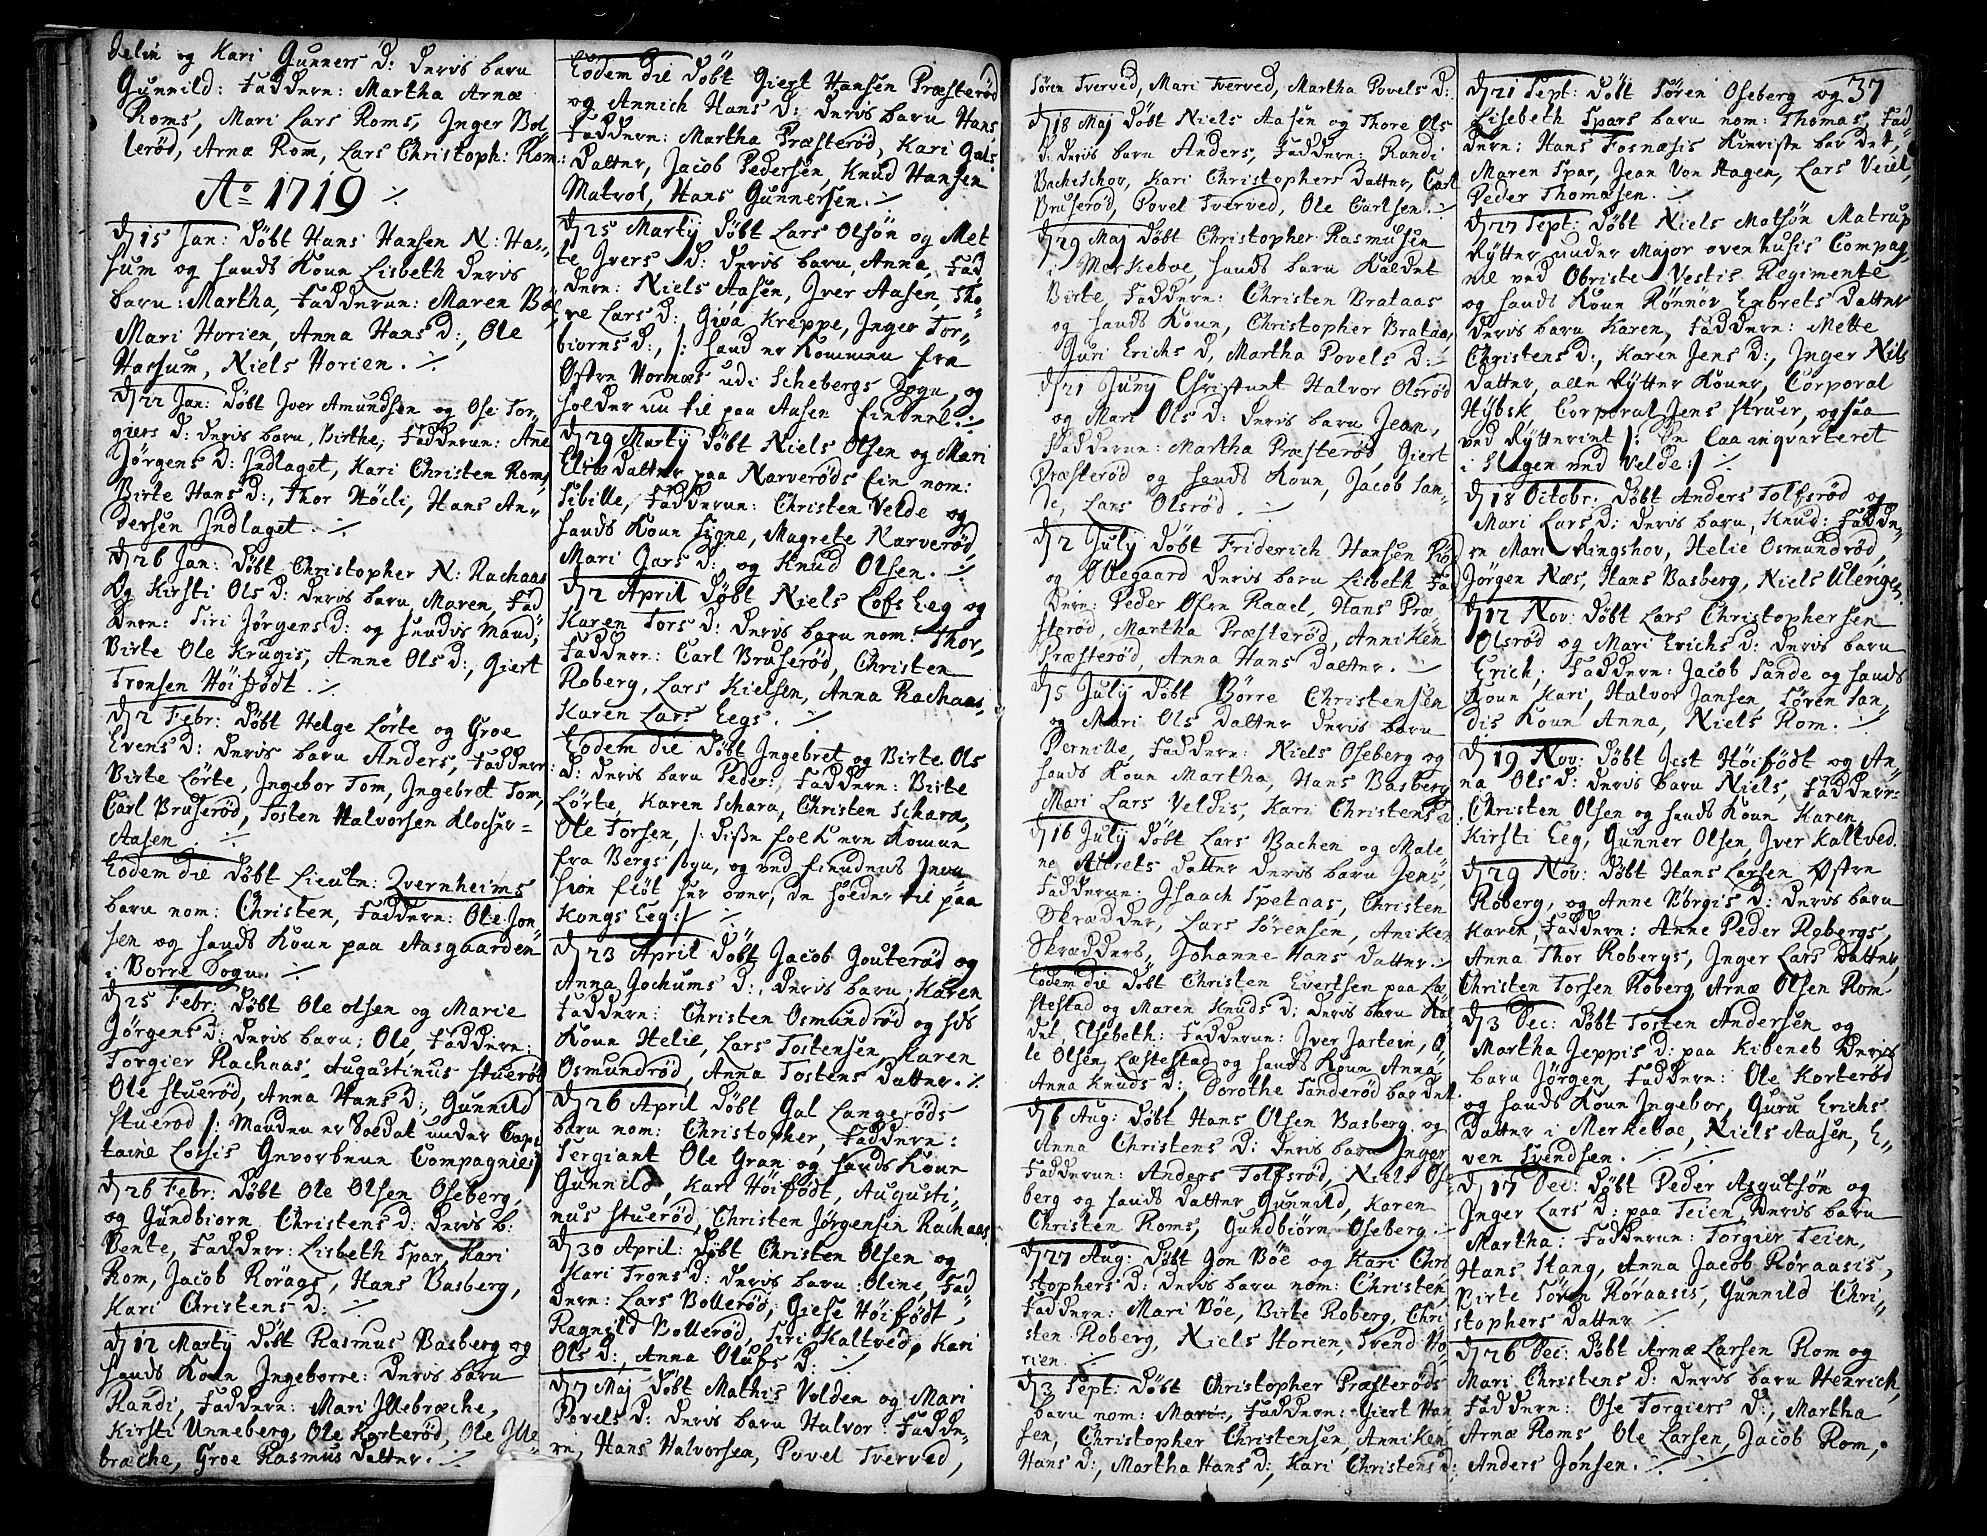 delin og Kari Gunners D: deris barn
Gunnild: Faddere: Martha Arnæ
Roms, Mari Lars Roms, Inger Bol
lerød, Arnæ Rom, Lars Christoph: Rom:
Ao 1719 ./.
D 15 Jan: døbt Hans Hansen N: Has,,
sum og hands Kone Lisbeth deris
barn: Martha, Faddere: Maren
Mari Horien, Anna Hans D:, Ole
Hassum, Niels Horien. ./.
D 22 Jan: døbt Iver Amundsen og Ose Tor,,
giers D: deris barn, Birthe, Faddere: Ane
Jørgens D: Indlaget, Kari Christen Roms,
Birte Hans D:, Thor Höcli, Hans An,,
dersen Indlaget. ./.
D 26 Jan: døbt Christopher N: Rachaas
og Kirsti Ols D: deris barn Maren, Fad
dere: Siri Jørgens D: og hendis Mand,
Birte Ole Krugis, Anne Ols D:, Giert
Tronsen Höifödt ./.
D 2 Febr: døbt Helge Lörte og Groe
Evens D: deris barn Anders, Faddere
Birte Lörte, Ingebor Tom, Ingebret Tom,
Carl Bruserød, Tosten Halvorsen Klocker=
Aasen ./.
Eodem die døbt Lieutn: Qvernheims
barn nom: Christen, Faddere: Ole Jon
sen og hands Kone paa Aasgaarden
i Borre Sogn. ./.
D 25 Febr: døbt Ole Olsen og Marie
Jörgens D: deris barn: Ole, Faddere:
Torgier Rachnas, Augustinus Stuerød
Ole Stuerød, Anna Hans D:, Gunnild
Stuerød /: Manden er Soldat under Capi
taine Lossis Gevorbne Compagnie:/
D 26 Febr: døbt Ole Olsen Oseberg,
og Gundbiorn Christens D: deris b:
Bente, Faddere: Lisbeth Spar, Kari
Rom, Jacob Rörags, Hans Basberg,
Kari Christens D: ./.
D 12 Martÿ døbt Rasmus Basberg og
hands Kone Ingeborre: deris barn
Randi, Faddere: Mari Illebræche,
Kirsti Unneberg, Ole Korterød, Ole Ille,,
bræche, Groe Rasmus datter. ./.
Eodem die døbt Giert Hansen Præsterød
og Annich Hans D: deris barn Hans
Faddere: Martha Præsterød, Kari Gals
datter, Jacob Pedersen, Knud Hansen
Matrol, Hans Gunnersen. ./.
D 25 Martÿ døbt Lars Olsön og Met
te Ivers D: deris barn Anna, Fad
dere: Niels Aasen, Iver Aasen, Tho,,
re Lars D: Giva Kreppe, Inger Tor,,
biorns D:, /: hand er Kommen fra
Östre Vormæs udi Schebergs Sogn, og
holder nu til paa Aasen Eindnel:/.
D 29 Martÿ døbt Niels Olsen og Mari
Elise datter paa Narverøds Ein nom:
Sibille, Faddere: Christen Velde og
hands Kone Signe, Magrete Narverød,
Mari Gars D:, og Knud Olsen. ./.
D 2 April døbt Niels Lofs Eeg og
Karen Tors D: deris barn nom: Thor,
Faddere: Carl Bruserød, Christen
Roberg, Lars Kielsen, Anna Rachaas,
Karen Lars Eegs. ./.
Eodem die døbt Ingebret og Birte Ols
D: deris barn Peder: Faddere: Birte
Lörte, Karen Schara, Christen Schara,
Ole Torsen, /: disse folk ere Komne
fra Bergs sogn, og ved fiendens Inva
sion fløt her over, de holder til paa
Kongs Eeg:/ ./.
D 23 April døbt Jacob Gouterød og
Anna Jochums D:, deris barn, Karen
Faddere: Christen Osmundrød og hds
Kone Helie, Lars Tostensen, Karen
Osmundrød, Anna Tostens datter. ./.
D 26 April døbt Gal Langerøds
barn nom: Christopher, Faddere:
Sergiant Ole Gran og hands Kone
Gunnild, Kari Höifödt, Augusti,,
nus Stuerød, Christen Jörgensen Rachaas
D 30 April: døbt Christen Olsen og
Kari Trons D: deris barn: Oline, Fad,,
dere: Lars Bollerød, Giese Höifödt,
Ragnild Bollerød, Siri Kaltved, Kari
Ols D:, Anna Olufs D: ./.
D 7 Maj døbt Mathis Volden og Mari
Povels D: deris barn Halvor: Fadde,,
re, Hans Halvorsen, Povel Tverved,
Sören Tverved, Mari Tverved, Martha Povels D:
D 18 Maj døbt Niels Aasen og Thore Ols
D: deris barn Anders, Faddere: Randi
Bacheschov, Kari Christophers datter, Carl
Bruserød, Povel Tverved, Ole Carlsen. ./.
D 29 Maj døbt Christopher Rasmusen
i Merkeboe, hands barn Kaldet
Birte, Faddere: Christen Brataas
og hands Kone, Christopher Brataas,
Guri Erichs D, Martha Povels D: ./.
D 21 Junÿ Christnet Halvor Olsrød
og Mari Ols D: deris barn Jean,
Faddere: Martha Præsterød, Giert
Præsterød og hands Kone, Jacob San,,
de, Lars Olsrød. ./.
D 2 Julÿ døbt Friderich Hansen Rød
og Ollegaard deris barn Lisbeth Fad
dere: Peder Ofre Raael, Hans Præ
sterød, Martha Præsterød, Anniken
Præsterød, Anna Hans datter. ./.
D 5 Julÿ døbt Börre Christensen
og Mari Ols datter deris barn
Pernille, Faddere: Niels Oseberg og
hands Kone Martha, Hans Basberg
Mari Lars Veldis, Kari Christens D
D 16 Julÿ døbt Lars Bachen og Male
ne Albrets datter deris barn Jens,
Faddere: Isaach Spetaas, Christen
Skrædder, Lars Sörensen, Aniken
Skrædders, Johanne Hans datter. ./.
Eodem die døbt Christen Evertsen paa Læ
stestad og Maren Knuds D: deris barn Kal,,
det, Elsebeth: Faddere: Iver Jartein, O,,
le Olsen, Læstestad og hands Kone Anna,
Anna Knuds D:, Dorothe Sanderød bar det.
D 6 Aug: døbt Hans Olsen Basberg og
Anna Christens D: deris barn Inger
Faddere: Anders Tolfsrød, Niels Ose,,
berg og hands datter Gunnild, Karen
Christen Roms, Gundbiörn Oseberg. ./.
D 27 Aug: døbt Jon Böe og Kari Chri
stophers D: deris barn nom: Christen,
Faddere: Mari Böe, Birte Roberg, Chri
sten Roberg, Niels Horien, Trend Ho,,
rien. ./.
D 3 Sept: døbt Christopher Præsterøds
barn nom: Mari, Faddere: Giert Han
sen, Christopher Christensen, Anniken
Hans D:, Martha Hans D:, Kari Christens D:
37
D 21 Sept: døbt Sören Oseberg og
Lisebeth Spars barn nom: Thomas, Fad,,
dere: Hans Fosnæsis Kieriste bar det,
Maren Spar, Jean Von Hagen, Lars Veiel,
Peder Thomæsen. ./.
D 27 Sept: døbt Niels Motsön Matrup
Rytter under Major ovenhusis Compag,,
nie ved Obriste Vestis Regimente
og hands Kone Rönnöv Enbrets datter
deris barn Karen, Faddere: Mette
Christens D:, Karen Jens D:, Inger Nils
datter, alle Rytter Koner, Corporal
Hybsk, Corporal Jens Struer, ogsaa
ved Rytteriet /: de laa inqvarteret
i Slagen ved Velde:/ ./.
D 18 Octobr: døbt Anders Tolfsrød og
Mari Lars D: deris barn, Knud: Fadde,,
re Mari Ringshov, Helie Osmundrød,
Jörgen Næs, Hans Basberg, Niels Ulerigen.
D 12 Nov: døbt Lars Christophersen
Olsrød og Mari Erichs D: deris barn
Erich, Faddere: Jacob Sande og hands
Kone Kari, Halvor Jansen, Sören San,,
dis Kone Anna, Niels Rom. ./.
D 19 Nov: døbt Jest Höifödt og An,,
na Ols D: deris barn Niels, Faddere:
Christen Olsen og hands Kone Karen,
Kirsti Eeg, Gunner Olsen, Iver Kaltved.
D 29 Nov: døbt Hans Larsen Östre
Roberg, og Anne Börgis D: deris barn
Karen, Faddere: Anne Peder Robergs,
Anna Thor Robergs, Inger Lars datter,
Christen Torsen Roberg, Arnæ Olsen Rom
D 3 Dec: døbt Tosten Andersen og
Martha Jeppis D: paa Kibeneb deris
barn Jörgen, Faddere: Ole Korterød
og hands Kone Ingebor, Guru Erichs
datter i Merkeboe, Niels Aasen, E,,
ven Svendsen. ./.
D 17 Dec: døbt Peder Asgutsön og
Inger Lars D: paa Teien, deris barn
Martha: Faddere: Torgier Teien,
Hans Stang, Anna Jacob Röraasis,
Birte Sören Röraasis, Gunnild Chri,,
stophers datter ./.
D 26 Dec: døbt Arnæ Larsen Rom og
Mari Christens D: deris barn Henrich,
Faddere: Ose Torgiers D:, Martha
Arnæ Roms, Ole Larsen, Jacob Rom,
Anders Jonsen. ./.